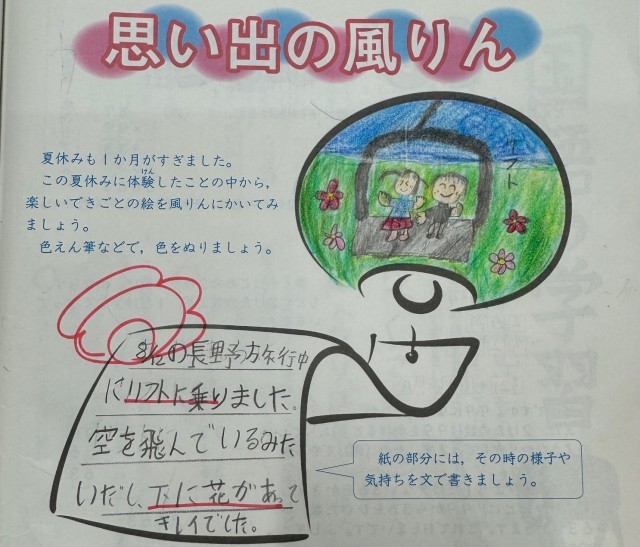 思い出の風りん
夏休みも1か月がすぎました。
この夏休みに体験したことの中から，
けん
楽しいできごとの絵を風りんにかいてみ
ましょう。
色えん筆などで，色をぬりましょう。
リフト
8/12の長野方旅行中
にリフトに乗りました。
空を飛んでいるみた
いだし、下に花があって
キレイでした。
紙の部分には，その時の様子や
気持ちを文で書きましょう。